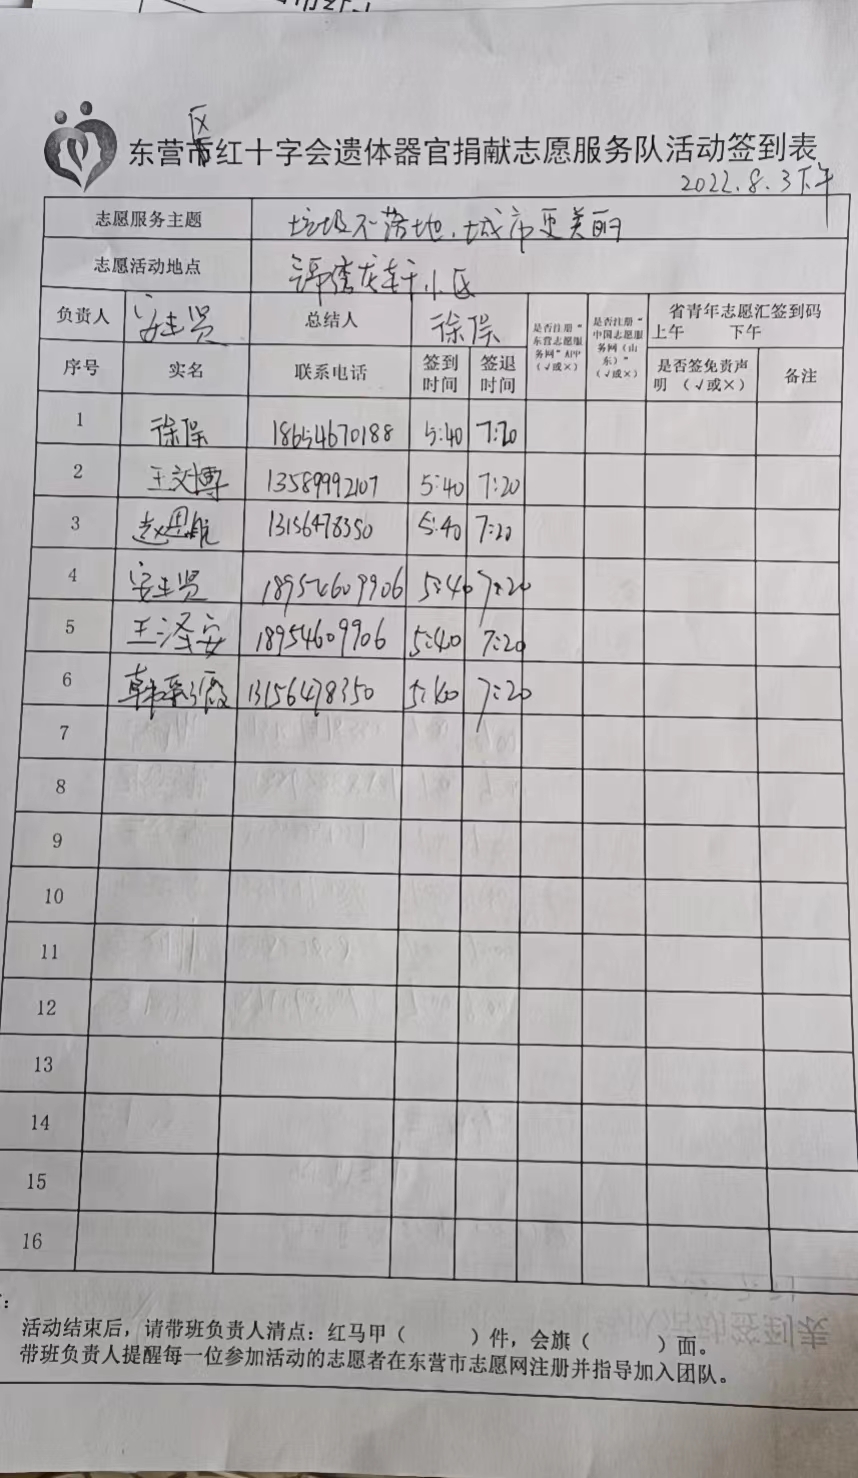 东营区红十字会遗体器官捐献志愿服务队活动签到表
2022.8.3下午
志愿服务主题 垃圾不落地,城市更美丽
志愿活动地点 小区
负责人 总结人 徐保 是否注册“东营志愿服务网”APP(√或×) 是否注册“中国志愿服务网(山东)”(√或×) 省青年志愿汇签到码 上午 下午
序号 实名 联系电话 签到时间 签退时间 是否签免责声明 (√或×) 备注
1 徐保 18654670188 5:40 7:20
2 王文博 13589992107 5:40 7:20
3 赵恩航 13156478350 5:40 7:20
4 18954609906 5:40 7:20
5 王泽安 18954609906 5:40 7:20
6 13156478350 5:40 7:20
7
8
9
10
11
12
13
14
15
16
活动结束后,请带班负责人清点:红马甲( )件,会旗( )面。
带班负责人提醒每一位参加活动的志愿者在东营市志愿网注册并指导加入团队。